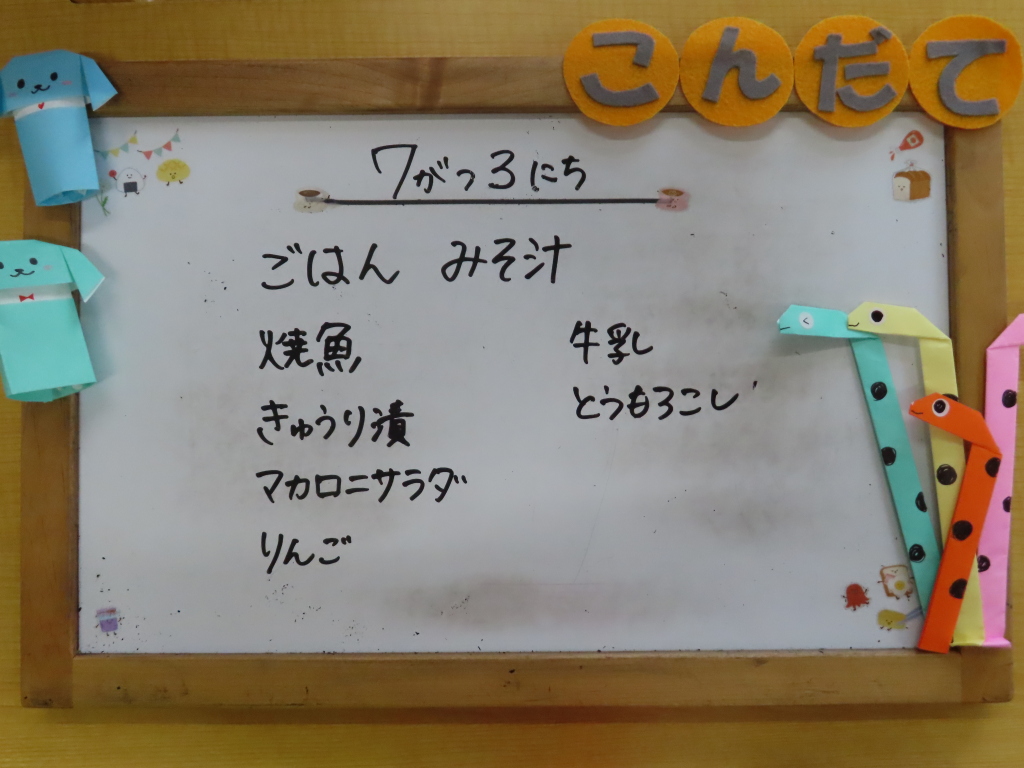 こんだて
7がつ3にち
ごはん みそ汁
焼魚
きゅうり漬
マカロニサラダ
りんご
牛乳
とうもろこし